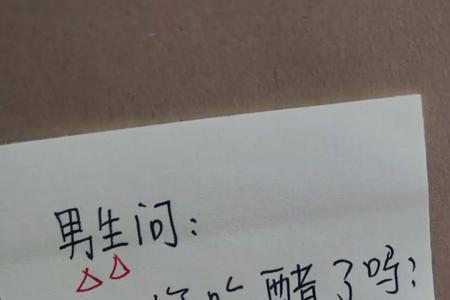 男生问:
醋了吗?